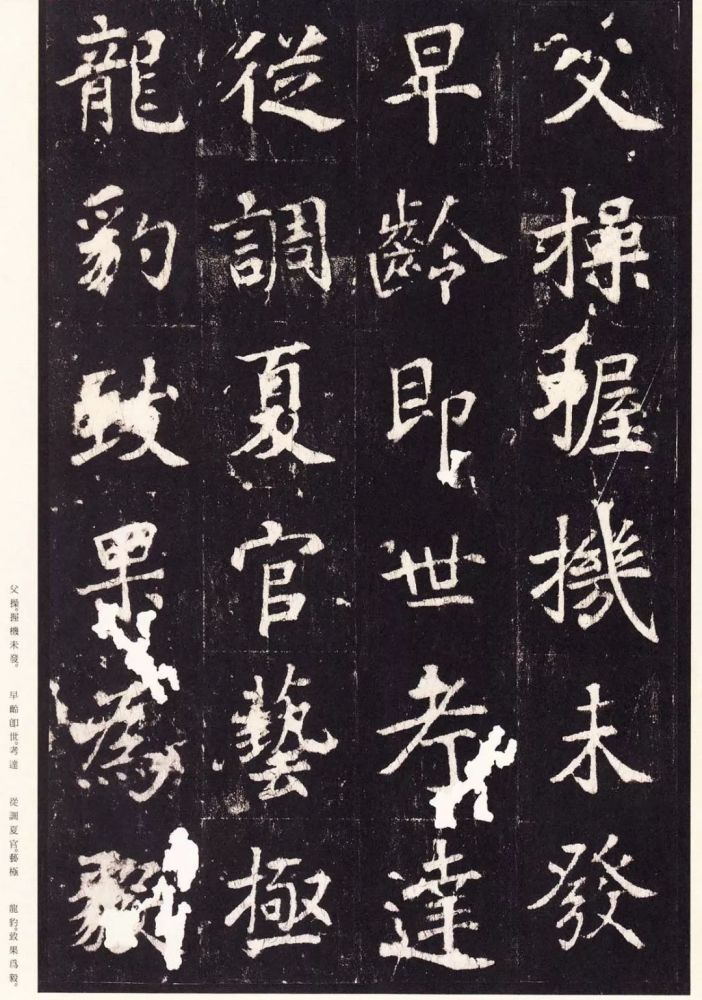 父操握機未發
早齡即世考達
從調夏官藝極
龍豹致果為毅
父操。握機未發。 早齡卽世。考達 從調夏官。藝極 龍豹。致果爲毅。